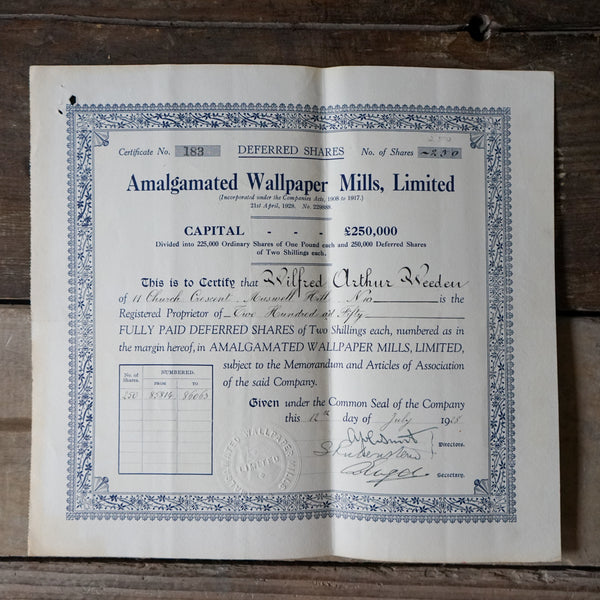 250
Certificate No. 183 DEFERRED SHARES No. of Shares 250
Amalgamated Wallpaper Mills, Limited
(Incorporated under the Companies Acts, 1908 to 1917.)
21st April, 1928. No. 229888.
CAPITAL - - - £250,000
Divided into 225,000 Ordinary Shares of One Pound each and 250,000 Deferred Shares
of Two Shillings each.
This is to Certify that Wilfred Arthur Weeden
of 11 Church Crescent Muswell Hill N10 is the
Registered Proprietor of Two Hundred and Fifty
FULLY PAID DEFERRED SHARES of Two Shillings each, numbered as in
the margin hereof, in AMALGAMATED WALLPAPER MILLS, LIMITED,
subject to the Memorandum and Articles of Association
of the said Company.
No. of Shares. NUMBERED.
FROM TO
250 85814 86063
Given under the Common Seal of the Company
this 12th day of July 1928.
Directors.
Secretary.
AMALGAMATED WALLPAPER MILLS
LIMITED